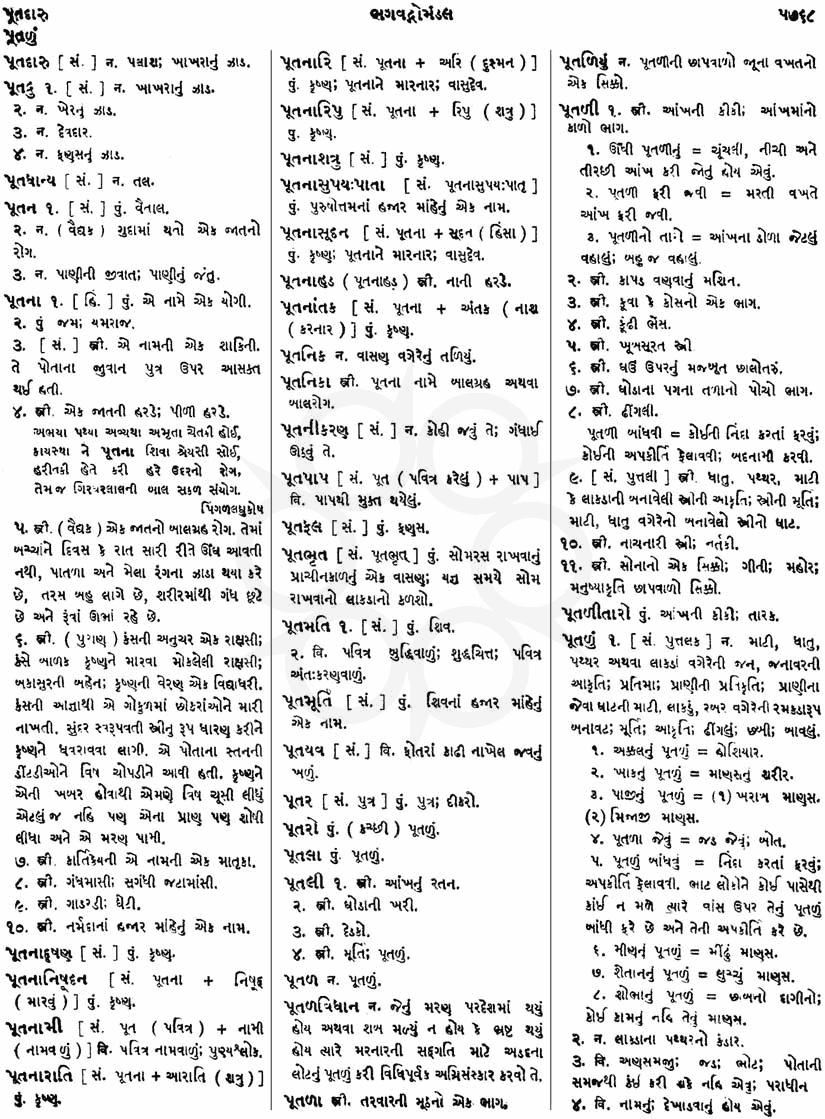 પૂતદારુ
પૂતળું
ભગવદ્ગોમંડલ
૫૭૬૮
પૂતદારુ [ સં. ] ન. પલાશ; ખાખરાનું ઝાડ.
પૂતદ્રુ ૧. [ સં. ] ન. ખાખરાનું ઝાડ.
૨. ન. ખેરનું ઝાડ.
૩. ન. દેવદાર.
૪. ન. ફણસનું ઝાડ.
પૂતધાન્ય [ સં. ] ન. તલ.
પૂતન ૧. [ સં. ] પું. વૈતાલ.
૨. ન. ( વૈદ્યક ) ગુદામાં થતો એક જાતનો
રોગ.
૩. ન. પાણીની જીવાત; પાણીનું જંતુ.
પૂતના ૧. [ હિં. ] પું. એ નામે એક યોગી.
૨. પું જમ; યમરાજ.
૩. [ સં. ] સ્ત્રી. એ નામની એક શાકિની.
તે પોતાના જુવાન પુત્ર ઉપર આસક્ત
થઈ હતી.
૪. સ્ત્રી. એક જાતની હરડે; પીળી હરડે.
અભયા પથ્યા અવ્યથા અમૃતા ચેતકી હોઈ,
કાયસ્થા ને પૂતના શિવા શ્રેયસી સોઈ,
હરીતકી હેતે કરી હરે ઉદરનો રોગ,
તેમજ ગિરધરલાલની બાલ સકળ સંયોગ.
પિંગળલઘુકોષ
૫. સ્ત્રી. (વૈદ્યક) એક જાતનો બાલગ્રહ રોગ. તેમાં
બચ્ચાંને દિવસ કે રાત સારી રીતે ઊંઘ આવતી
નથી, પાતળા અને મેલા રંગના ઝાડા થયા કરે
છે, તરસ બહુ લાગે છે, શરીરમાંથી ગંધ છૂટે
છે અને રૂંવાં ઊભાં રહે છે.
૬. સ્ત્રી. ( પુરાણ ) કંસની અનુચર એક રાક્ષસી;
કંસે બાળક કૃષ્ણને મારવા મોકલેલી રાક્ષસી;
બકાસુરની બહેન; કૃષ્ણની વેરણ એક વિદ્યાધરી.
કંસની આજ્ઞાથી એ ગોકુળમાં છોકરાંઓને મારી
નાખતી. સુંદર સ્વરૂપવતી સ્ત્રીનું રૂપ ધારણ કરીને
કૃષ્ણને ધવરાવવા લાગી. એ પોતાના સ્તનની
ડીંટડીઓને વિષ ચોપડીને આવી હતી. કૃષ્ણને
એની ખબર હોવાથી એમણે વિષ ચૂસી લીધું
એટલું જ નહિ પણ એના પ્રાણ પણ શોષી
લીધા અને એ મરણ પામી.
૭. સ્ત્રી. કાર્તિકેયની એ નામની એક માતૃકા.
૮. સ્ત્રી. ગંધમાસી; સુગંધી જટામાંસી.
૯. સ્ત્રી. ગાડરડી; ઘેટી.
૧૦. સ્ત્રી. નર્મદાનાં હજાર માંહેનું એક નામ.
પૂતનાદૂષણ [ સં. ] પું. કૃષ્ણ.
પૂતનાનિષૂદન [ સં. પૂતના + નિષૂદ્
( મારવું ) ] પું. કૃષ્ણ.
પૂતનામી [ સં. પૂત ( પવિત્ર ) + નામી
(નામવાળું) ] વિ. પવિત્ર નામવાળું; પુણ્યશ્લોક.
પૂતનારાતિ [ સં. પૂતના + આરાતિ (શત્રુ) ]
પું. કૃષ્ણ.
પૂતનારિ [ સં. પૂતના + અરિ ( દુશ્મન ) ]
પું. કૃષ્ણ; પૂતનાને મારનાર; વાસુદેવ.
પૂતનારિપુ [ સં. પૂતના + રિપુ ( શત્રુ ) ]
પું. કૃષ્ણ.
પૂતનાશત્રુ [ સં. ] પું. કૃષ્ણ.
પૂતનાસુપયઃપાતા [ સં. પૂતનાસુપયઃપાતૃ ]
પું. પુરુષોત્તમનાં હજાર માંહેનું એક નામ.
પૂતનાસૂદન [ સં. પૂતના + સૂદન ( હિંસા ) ]
પું. કૃષ્ણ; પૂતનાને મારનાર; વાસુદેવ.
પૂતનાહડ ( પૂતનાહડ ) સ્ત્રી. નાની હરડે.
પૂતનાંતક [ સં. પૂતના + અંતક ( નાશ
( કરનાર ) ] પું. કૃષ્ણ.
પૂતનિક ન. વાસણ વગેરેનું તળિયું.
પૂતનિકા સ્ત્રી. પૂતના નામે બાલગ્રહ અથવા
બાલરોગ.
પૂતનીકરણ [ સં. ] ન. કોહી જવું તે; ગંધાઈ
ઊઠવું તે.
પૂતપાપ [ સં. પૂત ( પવિત્ર કરેલું ) + પાપ ]
વિ. પાપથી મુક્ત થયેલું.
પૂતફલ [ સં. ] પું. ફણસ.
પૂતભૃત [ સં. પૂતભૃત્ ] પું. સોમરસ રાખવાનું
પ્રાચીનકાળનું એક વાસણ; યજ્ઞ સમયે સોમ
રાખવાનો લાકડાનો કળશો.
પૂતમતિ ૧. [ સં. ] પું. શિવ.
૨. વિ. પવિત્ર બુદ્ધિવાળું; શુદ્ધચિત્ત; પવિત્ર
અંતઃકરણવાળું.
પૂતમૂર્તિ [ સં. ] પું. શિવનાં હજાર માંહેનું
એક નામ.
પૂતયવ [ સં. ] વિ. ફોતરાં કાઢી નાખેલ જવનું
ખળું.
પૂતર [ સં. પુત્ર ] પું. પુત્ર; દીકરો.
પૂતરો પું. ( કચ્છી ) પૂતળું.
પૂતલા પું. પૂતળું.
પૂતલી ૧. સ્ત્રી. આંખનું રતન.
૨. સ્ત્રી. ઘોડાની ખરી.
૩. સ્ત્રી. દેડકો.
૪. સ્ત્રી. મૂર્તિ; પૂતળું.
પૂતળ ન. પૂતળું.
પૂતળવિધાન ન. જેનું મરણ પરદેશમાં થયું
હોય અથવા શબ મળ્યું ન હોય કે ભ્રષ્ટ થયું
હોય ત્યારે મરનારની સદ્ગતિ માટે અડદના
લોટનું પૂતળું કરી વિધિપૂર્વક અગ્નિસંસ્કાર કરવો તે.
પૂતળા સ્ત્રી. તરવારની મૂઠનો એક ભાગ.
પૂતળિયું ન. પૂતળીની છાપવાળો જૂના વખતનો
એક સિક્કો.
પૂતળી ૧. સ્ત્રી. આંખની કીકી; આંખમાંનો
કાળો ભાગ.
૧. ઊંધી પૂતળીનું = ચૂંચળી, નીચી અને
તીરછી આંખ કરી જોતું હોય એવું.
૨. પૂતળી ફરી જવી = મરતી વખતે
આંખ ફરી જવી.
૩. પૂતળીનો તારો = આંખના ડોળા જેટલું
વહાલું; બહુ જ વહાલું.
૨. સ્ત્રી. કાપડ વણવાનું મશિન.
૩. સ્ત્રી. કૂવા કે કોસનો એક ભાગ.
૪. સ્ત્રી. કૂંઢી ભેંસ.
૫. સ્ત્રી. ખૂબસૂરત સ્ત્રી
૬. સ્ત્રી. ઘઉં ઉપરનું મજબૂત છાલોતરું.
૭. સ્ત્રી. ઘોડાના પગના તળાનો પોચો ભાગ.
૮. સ્ત્રી. ઢીંગલી.
પૂતળી બાંધવી = કોઈની નિંદા કરતાં ફરવું;
કોઈની અપકીર્તિ ફેલાવવી; બદનામી કરવી.
૯. [ સં. પુત્તલી ] સ્ત્રી. ધાતુ, પથ્થર, માટી
કે લાકડાની બનાવેલી સ્ત્રીની આકૃતિ; સ્ત્રીની મૂર્તિ;
માટી, ધાતુ વગેરેનો બનાવેલો સ્ત્રીનો ઘાટ.
૧૦. સ્ત્રી. નાચનારી સ્ત્રી; નર્તકી.
૧૧. સ્ત્રી. સોનાનો એક સિક્કો; ગીની; મહોર;
મનુષ્યાકૃતિ છાપવાળો સિક્કો.
પૂતળીતારો પું. આંખની કીકી; તારક.
પૂતળું ૧. [ સં. પુત્તલક ] ન. માટી, ધાતુ,
પથ્થર અથવા લાકડાં વગેરેની જન, જનાવરની
આકૃતિ; પ્રતિમા; પ્રાણીની પ્રતિકૃતિ; પ્રાણીના
જેવા ઘાટની માટી, લાકડું, રબર વગેરેની રમકડારૂપ
બનાવટ; મૂર્તિ; આકૃતિ; ઢીંગલું; છબી; બાવલું.
૧. અક્કલનું પૂતળું = હોશિયાર.
૨. ખાકનું પૂતળું = માણસનું શરીર.
૩. પાજીનું પૂતળું = (૧) ખરાબ માણસ.
(૨) મિજાજી માણસ.
૪. પૂતળા જેવું = જડ જેવું; બોત.
૫. પૂતળું બાંધવું = નિંદા કરતાં ફરવું;
અપકીર્તિ ફેલાવવી. ભાટ લોકોને કોઈ પાસેથી
કાંઈ ન મળે ત્યારે વાંસ ઉપર તેનું પૂતળું
બાંધી ફરે છે અને તેની અપકીર્તિ કરે છે.
૬. મીણનું પૂતળું = મીઢું માણસ.
૭. શેતાનનું પૂતળું = લુચ્ચું માણસ.
૮. શોભાનું પૂતળું = છબનો દાગીનો;
કોઈ કામનું નહિ તેવું માણસ.
૨. ન. લાકડાના પથ્થરનો કંડાર.
૩. વિ. અણસમજી; જડ; ભોટ; પોતાની
સમજથી કંઈ કરી શકે નહિ એવું; પરાધીન
૪. વિ. નામનું; દેખાડવાનું હોય એવું.